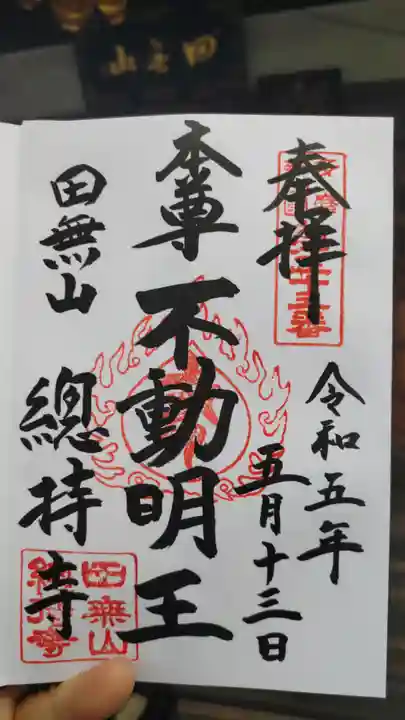 奉拝
令和五年
五月十三日
本尊
不動明王
田無山
總持寺
田無山
總持寺
田無山